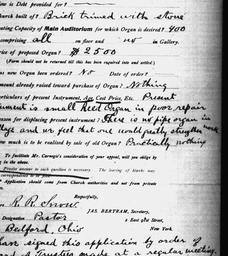 is Debt provided for?
church built of? Brick trimed with stone
ating Capacity of Main Auditorium for which Organ is desired? 400
omprising all on floor and no in Gallery.
rice of proposed Organ? $2500
(Form should not be returned till this has been inquired into and stated.)
as new Organ been ordered? No Date of order?
mount already raised toward purchase of Organ? Nothing
articulars of present Instrument, Age, Cost, Price, Etc. Present
ument is small Reed Organ in poor repair
eason for displacing present Instrument? There is no pipe organ in
llage and we feel that one would greatly strengthen
ow much is to be realized by sale of old Organ? Practically nothing
To facilitate Mr. Carnegie's consideration of your appeal, will you oblige by
in the above.
Precise answer to each question is necessary. The leaving of blanks may
Application should come from Church authorities and not from private
Respectfully,
R. R. Snow. JAS. BERTRAM, Secretary,
Designation Pastor 2 East 91st Street,
Belford, Ohio New York.
have signed this application by order of
d of Trustees made at a regular meeting.